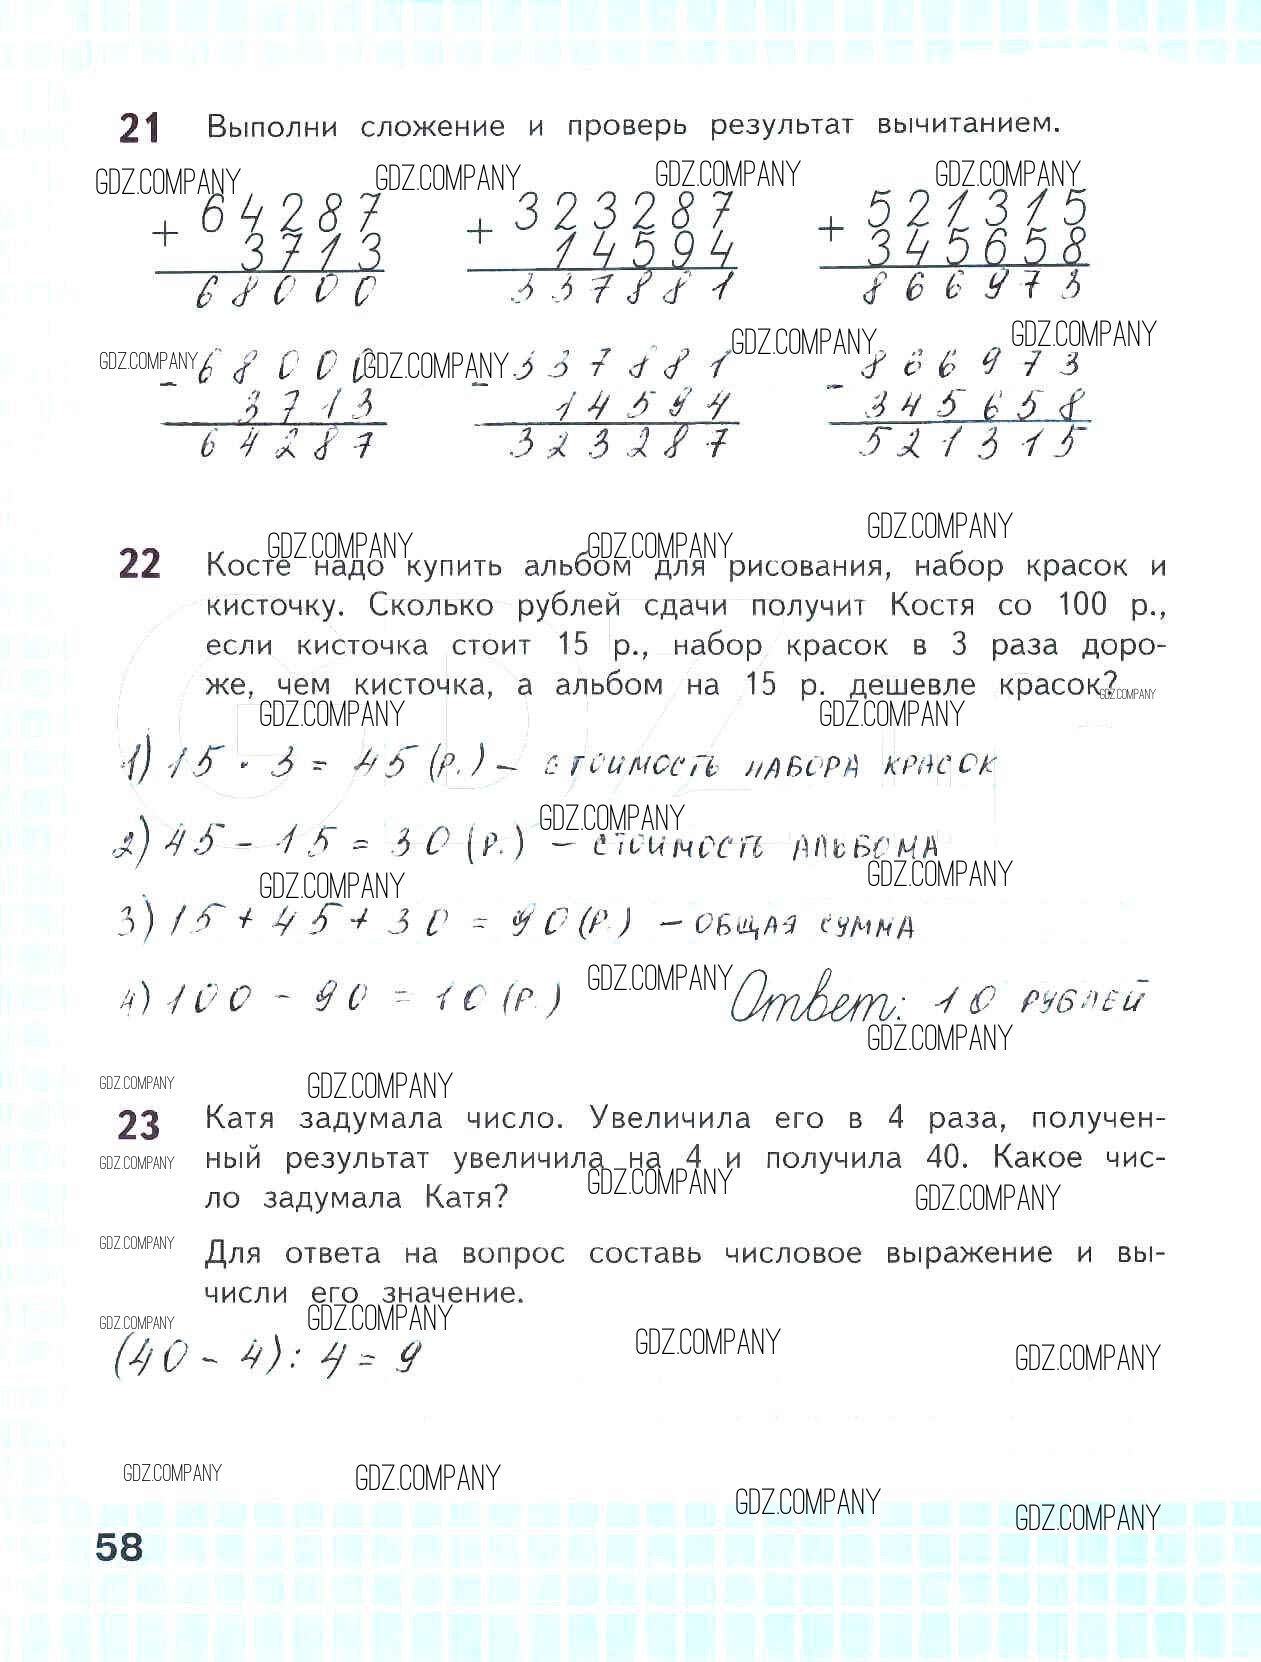 21 Выполни сложение и проверь результат вычитанием.
GDZ.COMPANY GDZ.COMPANY GDZ.COMPANY GDZ.COMPANY
+ 64287 + 323287 + 521315
3713 14594 345658
68000 337881 866973
GDZ.COMPANY GDZ.COMPANY GDZ.COMPANY GDZ.COMPANY
- 68000 - 337881 - 866973
3713 14594 345658
64287 323287 521315
GDZ.COMPANY GDZ.COMPANY GDZ.COMPANY
22 Косте надо купить альбом для рисования, набор красок и
кисточку. Сколько рублей сдачи получит Костя со 100 р.,
если кисточка стоит 15 р., набор красок в 3 раза доро-
же, чем кисточка, а альбом на 15 р. дешевле красок?
GDZ.COMPANY
GDZ.COMPANY GDZ.COMPANY
1) 15 · 3 = 45 (р.) – стоимость набора красок
GDZ.COMPANY
2) 45 – 15 = 30 (р.) – стоимость альбома
GDZ.COMPANY GDZ.COMPANY
3) 15 + 45 + 30 = 90 (р.) – общая сумма
GDZ.COMPANY
4) 100 – 90 = 10 (р.) Ответ: 10 рублей
GDZ.COMPANY
GDZ.COMPANY GDZ.COMPANY
23 Катя задумала число. Увеличила его в 4 раза, получен-
GDZ.COMPANY
ный результат увеличила на 4 и получила 40. Какое чис-
GDZ.COMPANY GDZ.COMPANY
ло задумала Катя?
GDZ.COMPANY
Для ответа на вопрос составь числовое выражение и вы-
числи его значение.
GDZ.COMPANY GDZ.COMPANY GDZ.COMPANY GDZ.COMPANY
(40 – 4) : 4 = 9
GDZ.COMPANY GDZ.COMPANY GDZ.COMPANY GDZ.COMPANY
58